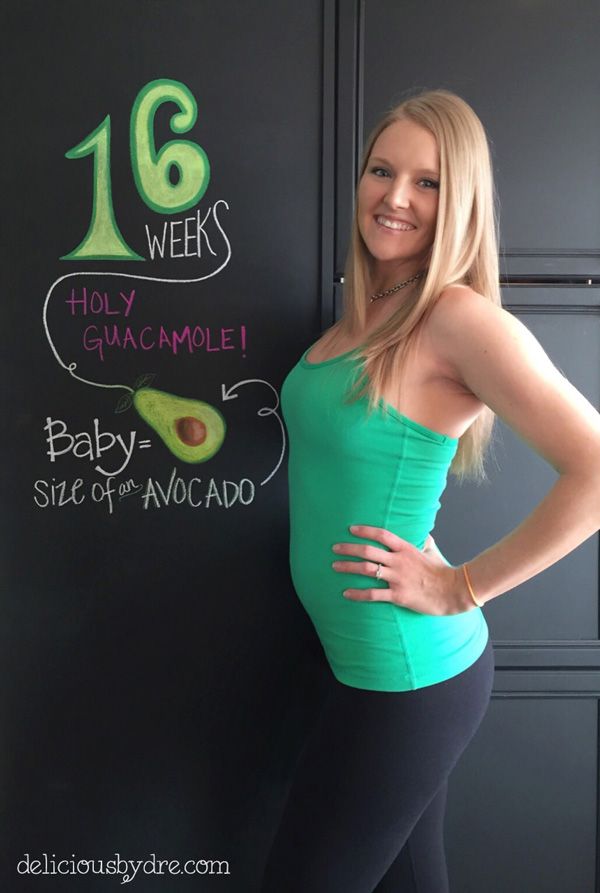 16
WEEKS
HOLY
GUACAMOLE!
Baby=
size of an AVOCADO
deliciousbydre.com